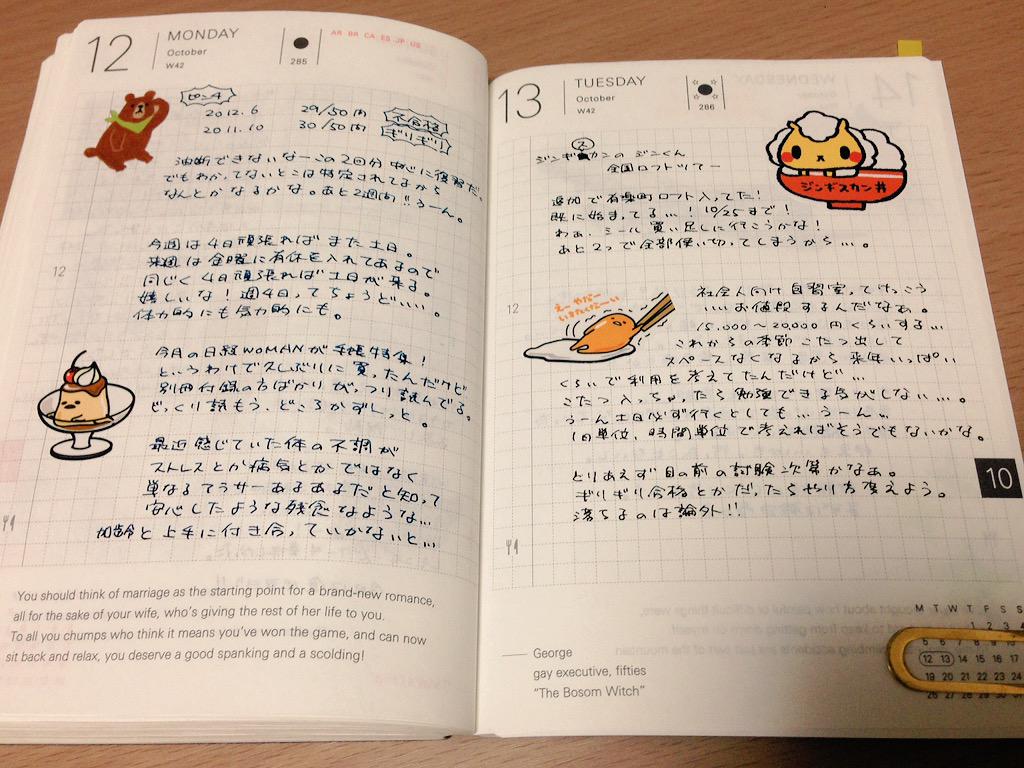 12
MONDAY
October
W42
285
AR BR CA ES JP US
ピンチ
2012.6 29/50円 不合格
2011.10 30/50円 ギリギリ
油断できないなーこの2回分 中心に復習だ。
でもわかってないとこは特定されてるから
なんとかなるかな。あと2週間!!うーん。
今週は4日頑張れば また土日。
来週は金曜に有休を入れてあるので
同じく4日頑張れば土日が来る。
嬉しいな!週4日ってちょうどいい。
体力的にも気力的にも。
12
今月の日経WOMANが手帳特集!
というわけで久しぶりに買ったんだけど
別冊付録の方ばかりがっつり読んでる。
じっくり読もう、どころかずーっと。
最近感じていた体の不調が
ストレスとか病気とかではなく
単なるアラサーあるあるだと知って
安心したような残念なような…
加齢と上手に付き合っていかないと…
You should think of marriage as the starting point for a brand-new romance,
all for the sake of your wife, who's giving the rest of her life to you.
To all you chumps who think it means you've won the game, and can now
sit back and relax, you deserve a good spanking and a scolding!
13
TUESDAY
October
W42
286
ジンギスカンのジンくん
全国ロフトツアー
ジンギスカン丼
追加で有楽町ロフト入ってた!
既に始まってる…!10/25まで!
わぁ、ミール買い足しに行こうかな!
あと2つで全部使い切ってしまうから…。
12
えーやだー
いきたくなーい
社会人向け自習室ってけっこう
いいお値段するんだなぁ。
15,000〜20,000円くらいする…
これからの季節こたつ出して
スペースなくなるから来年いっぱい
くらいで利用を考えてたんだけど…
こたつ入っちゃったら勉強できる気がしない…。
うーん土日必ず行くとしても…うーん…
1日単位、時間単位で考えればそうでもないかな。
とりあえず目の前の試験次第かなぁ。
ギリギリ合格とかだったらやり方変えよう。
落ちるのは論外!!
10
George
gay executive, fifties
"The Bosom Witch"
M T W T F S S
1 2 3 4
5 6 7 8 9 10
12 13 14 15 16 17
19 20 21 22 23 24
26 27 28 29 30 31